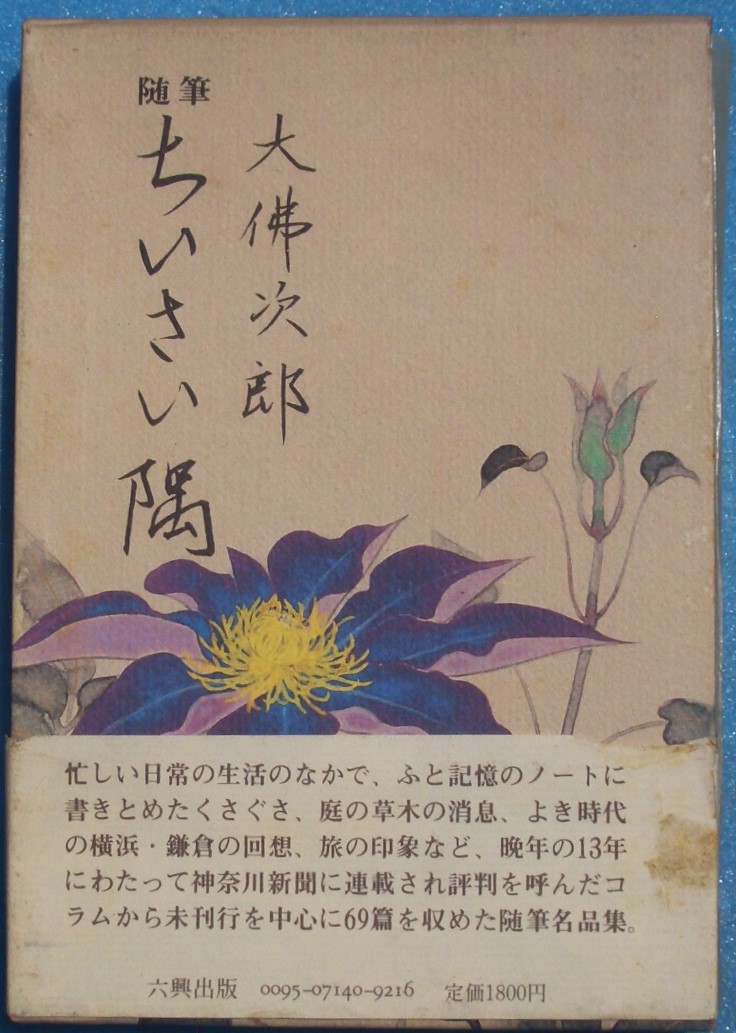 大佛次郎
随筆
ちいさい隅
忙しい日常の生活のなかで、ふと記憶のノートに
書きとめたくさぐさ、庭の草木の消息、よき時代
の横浜・鎌倉の回想、旅の印象など、晩年の13年
にわたって神奈川新聞に連載され評判を呼んだコ
ラムから未刊行を中心に69篇を収めた随筆名品集。
六興出版 0095-07140-9216 定価1800円